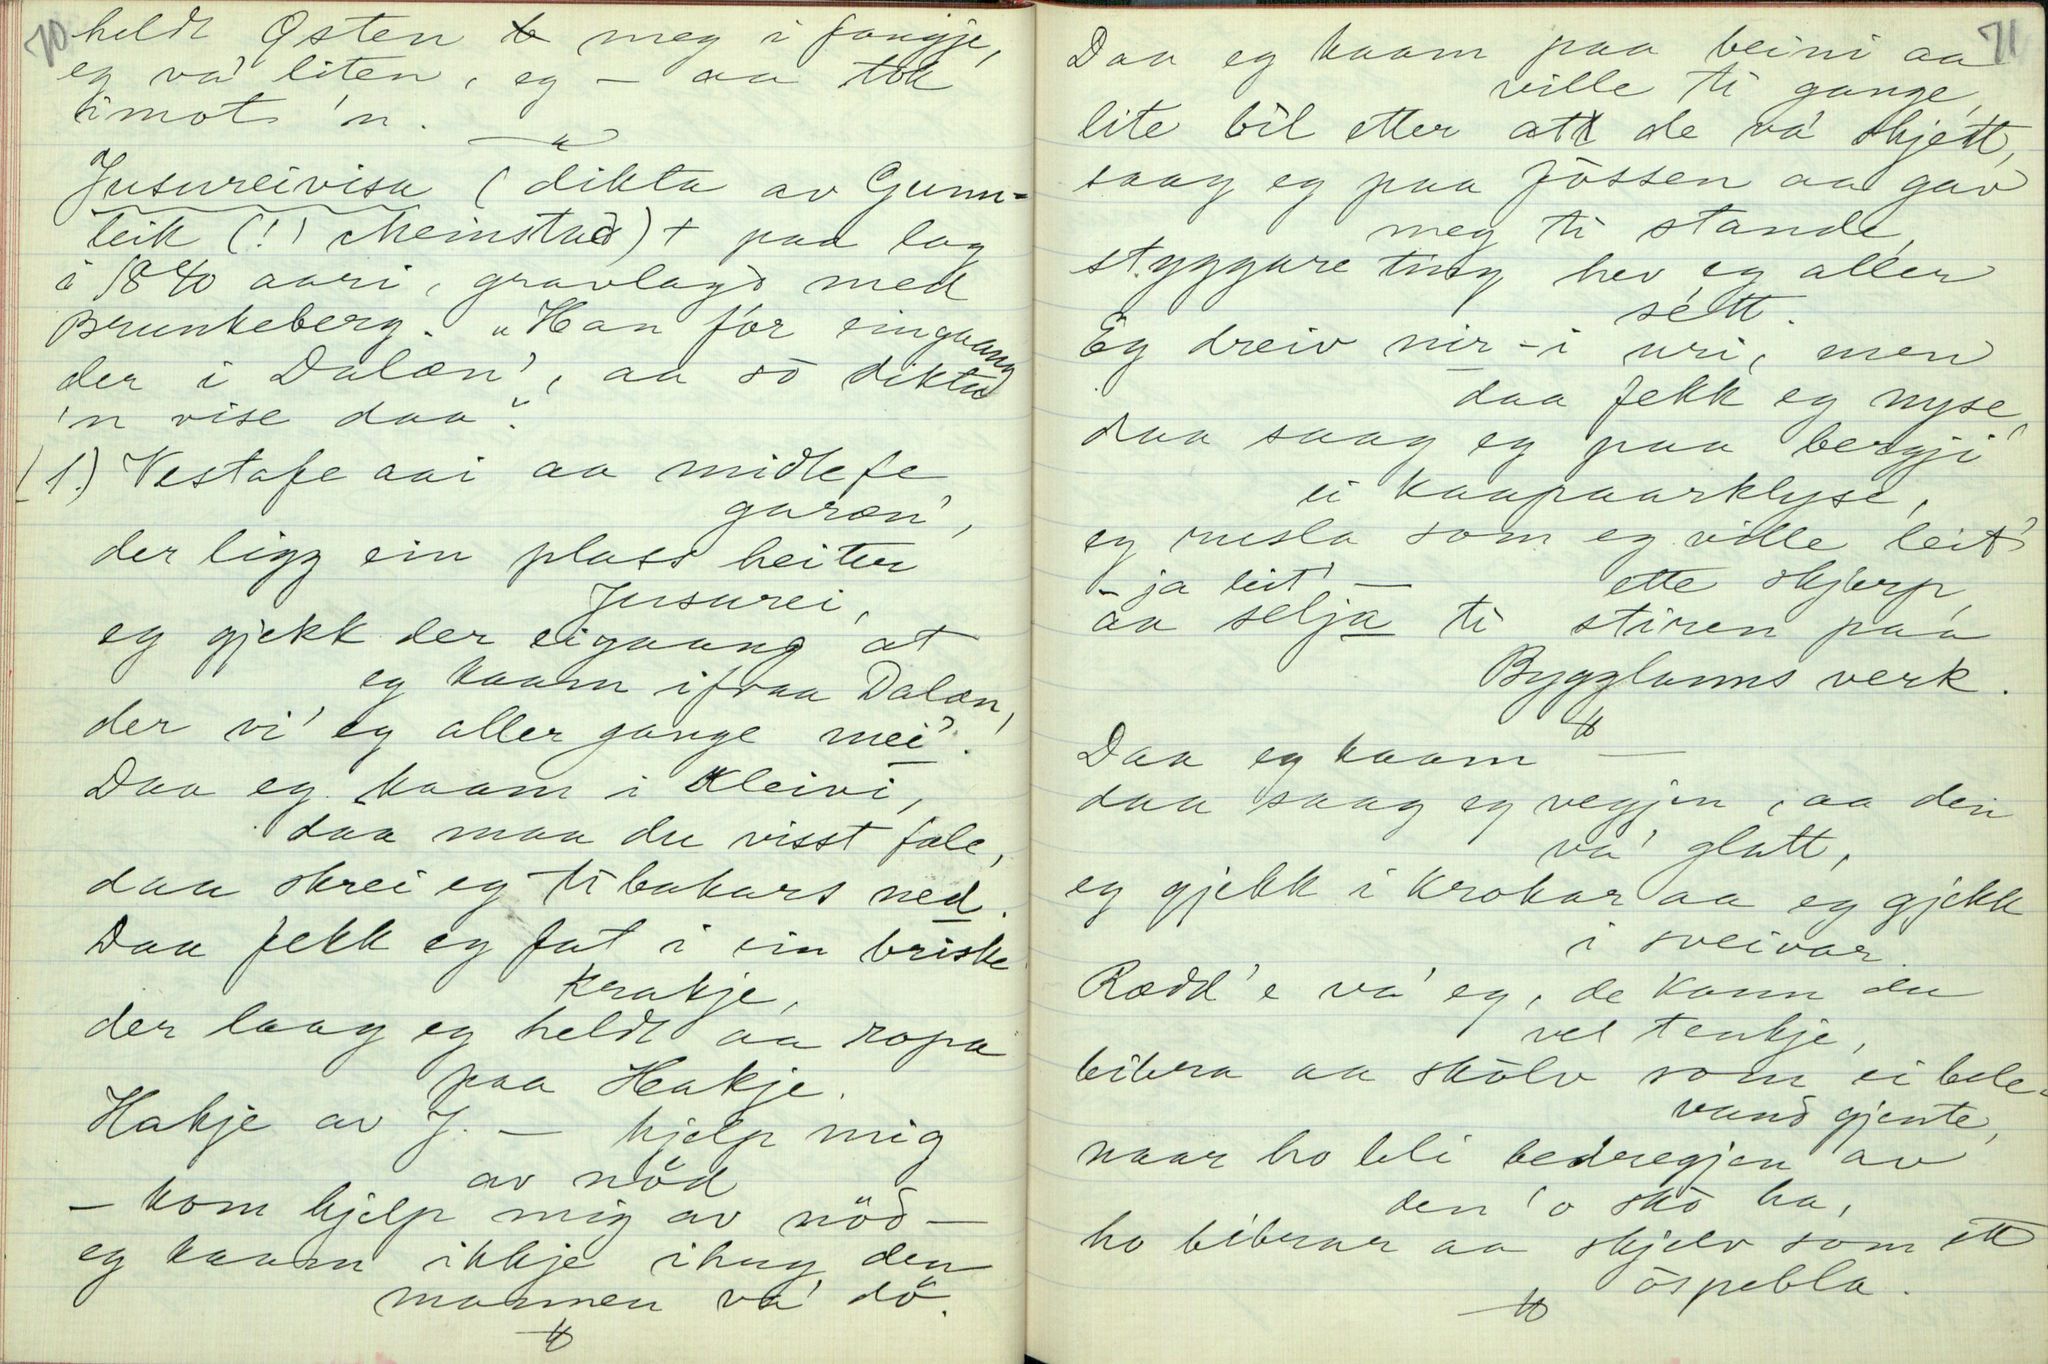 70
heldt Østen meg i fangje,
eg va' liten, eg – aa tok
imot 'n.
Jusureivisa (dikta av Gunn-
leik (!) Meinstad) + paa lag
i 1840 aari, gravlagd med
Brunkeberg. „Han for eingaang
der i Dalæn', aa so dikta
'n vise daa“.
(1.) Vestafe aai aa midlefe
garæn',
der ligg ein plass heiter
Jusurei,
eg gjekk der eigaang at
eg kaam ifraa Dalæn,
der vi' eg aller gange mei'.!
Daa eg kaam i Kleivi,
daa maa du visst fale,
daa skrei eg tibakars ned.
Daa fekk eg fat i ein briske
krakje,
der laag eg heldt aa ropa
paa Hakje.
Hakje av J. – hjelp mig
av nöd
– kom hjelp mig av nöd –
eg kaam ikkje ihug den
mannen va' dö.
71
Daa eg kaam paa beini aa
ville ti gange,
lite bil etter att de va' skjett,
saag eg paa Jössen aa gav
meg ti stande,
styggare ting hev eg aller
sétt.
Eg dreiv nir-i uri, men
daa fekk eg nyse,
daa saag eg paa bergji
ei kaapaarklyse,
eg rusla som eg ville leit'
– ja leit' – ette skjerp,
aa selja ti stiren paa
Bygglanns verk.
Daa eg kaam –
daa saag eg vegjen, aa den
va' glatt,
eg gjekk i krokar aa eg gjekk
i sveivar.
Rædd'e va' eg, de kann du
vel tenkje,
bibra aa skolv som ei bele-
vand gjente,
naar ho bli bedregjen av
den 'o sko ha,
ho bibrar aa skjelv som ett
öspebla.